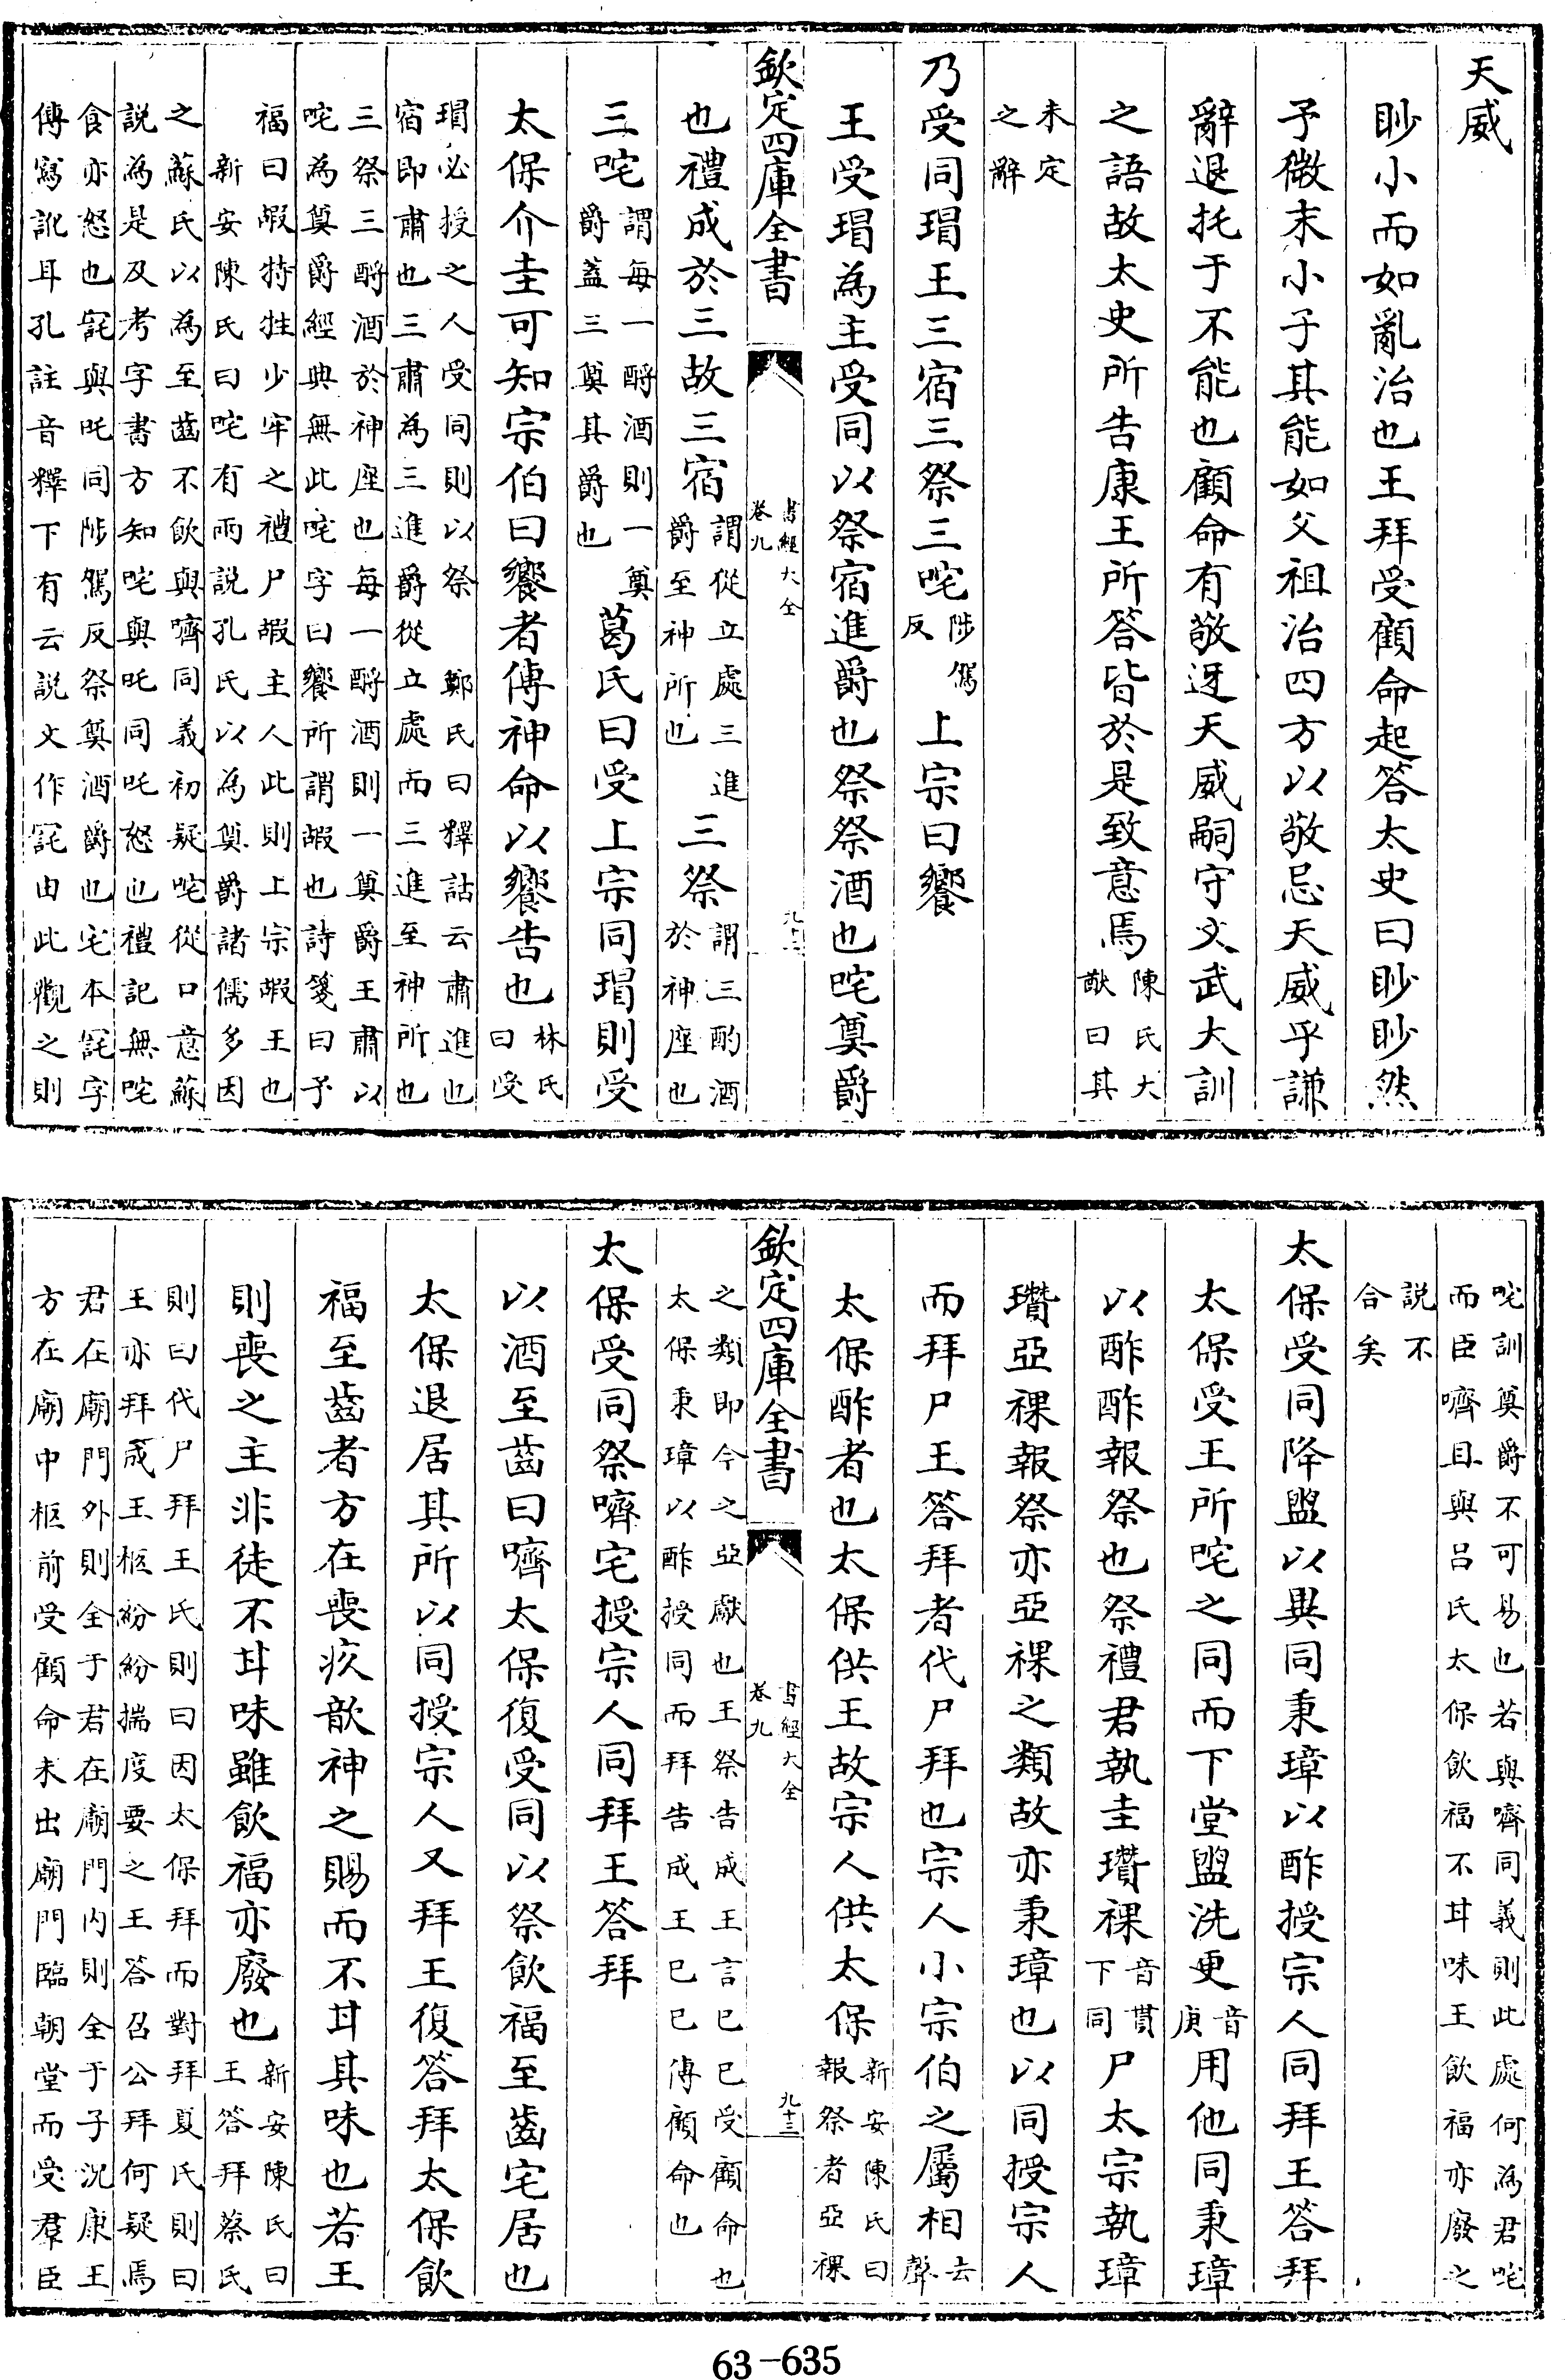 天威
眇小而如亂治也王拜受顧命起答太史曰眇眇然
予微末小子其能如父祖治四方以敬忌天威乎謙
辭退托于不能也顧命有敬迓天威嗣守文武大訓
之語故太史所告康王所答皆於是致意焉陳氏大猷曰其
未定之辭
乃受同瑁王三宿三祭三咤陟嫁反上宗曰饗
王受瑁為主受同以祭宿進爵也祭祭酒也咤奠爵
欽定四庫全書
書經大全
卷九
九十二
也禮成於三故三宿謂從立處三進爵至神所也三祭謂三酌酒於神座也
三咤謂每一酹酒則一奠爵蓋三奠其爵也葛氏曰受上宗同瑁則受
太保介圭可知宗伯曰饗者傳神命以饗告也林氏曰受
瑁必授之人受同則以祭鄭氏曰釋詁云肅進也
宿即肅也三肅為三進爵從立處而三進至神所也
三祭三酹酒於神座也每一酹酒則一奠爵王肅以
咤為奠爵經典無此咤字曰饗所謂嘏也詩箋曰予
福曰嘏特牲少牢之禮尸嘏主人此則上宗嘏王也
新安陳氏曰咤有兩說孔氏以為奠爵諸儒多因
之蘇氏以為至齒不飲與嚌同義初疑咤從口意蘇
說為是及考字書方知咤與吒同吒怒也禮記無咤
食亦怒也詫與吒同陟駕反祭奠酒爵也宅本詫字
傳寫訛耳孔註音釋下有云說文作詫由此觀之則
咤訓奠爵不可易也若與嚌同義則此處何為君咤
而臣嚌且與呂氏太保飲福不甘味王飲福亦廢之
說不合矣
太保受同降盥以異同秉璋以酢授宗人同拜王答拜
太保受王所咤之同而下堂盥洗更音庚用他同秉璋
以酢酢報祭也祭禮君執圭瓚祼音貫下同尸太宗執璋
瓚亞祼報祭亦亞祼之類故亦秉璋也以同授宗人
而拜尸王答拜者代尸拜也宗人小宗伯之屬相去聲
太保酢者也太保供王故宗人供太保新安陳氏曰報祭者亞祼
欽定四庫全書
書經大全
卷九
九十三
之類即今之亞獻也王祭告成王言已已受顧命也
太保秉璋以酢授同而拜告成王已已傳顧命也
太保受同祭嚌宅授宗人同拜王答拜
以酒至齒曰嚌太保復受同以祭飲福至齒宅居也
太保退居其所以同授宗人又拜王復答拜太保飲
福至齒者方在喪疚歆神之賜而不甘其味也若王
則喪之主非徒不甘味雖飲福亦廢也新安陳氏曰王答拜蔡氏
則曰代尸拜王氏則曰因太保拜而對拜夏氏則曰
王亦拜成王柩紛紛揣度要之王答召公拜何疑焉
君在廟門外則全于君在廟門內則全于子況康王
方在廟中柩前受顧命未出廟門臨朝堂而受羣臣
63-635